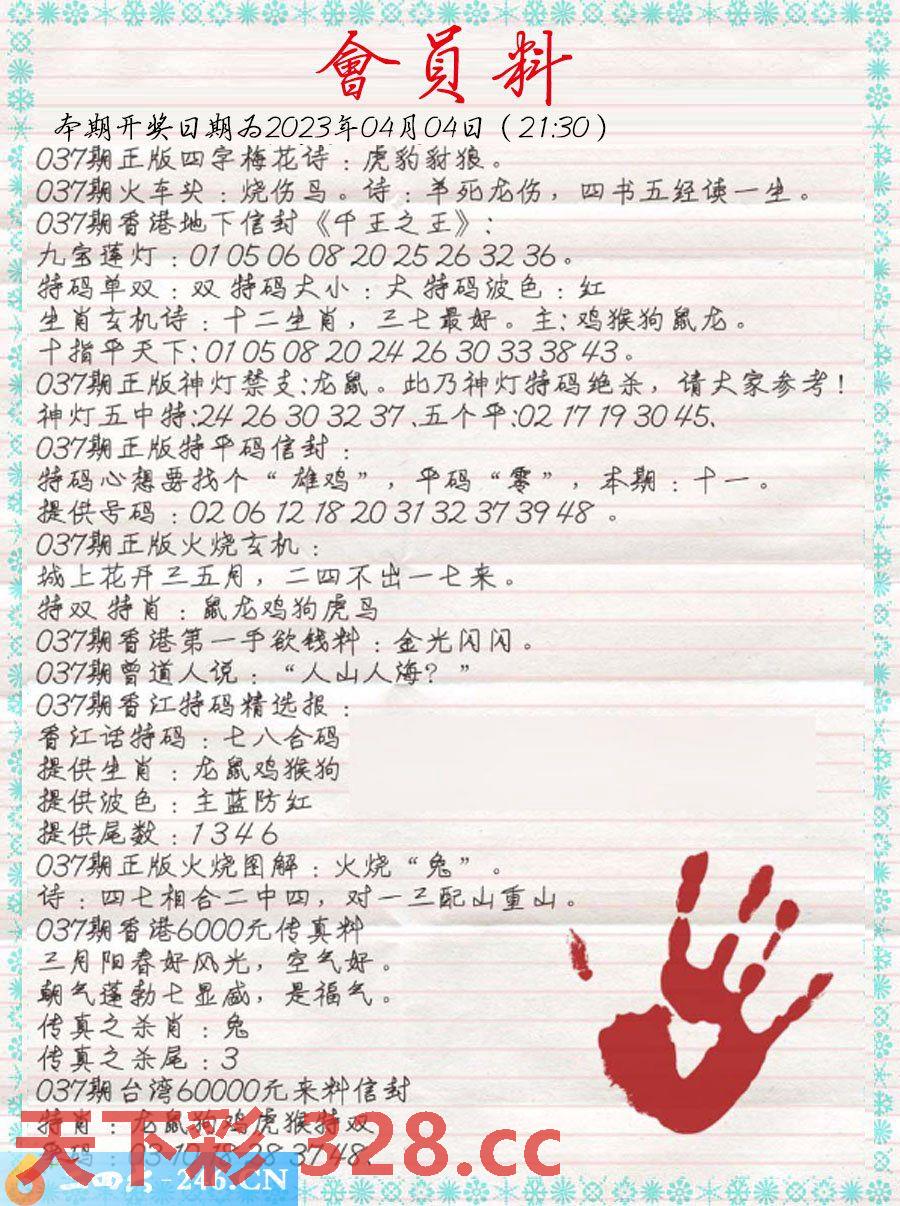 會員料
本期开奖日期为2023年04月04日（21:30）
037期正版四字梅花诗：虎豹豺狼。
037期火车头：烧伤鸟。诗：羊死龙伤，四书五经读一生。
037期香港地下信封《千王之王》：
九宝莲灯：01 05 06 08 20 25 26 32 36。
特码单双：双 特码大小：大 特码波色：红
生肖玄机诗：十二生肖，三七最好。主：鸡猴狗鼠龙。
十指平天下:01 05 08 20 24 26 30 33 38 43。
037期正版神灯禁支:龙鼠。此乃神灯特码绝杀，请大家参考！
神灯五中特:24 26 30 32 37、五个平:02 17 19 30 45、
037期正版特平码信封：
特码心想要找个“雄鸡”，平码“零”，本期：十一。
提供号码：02 06 12 18 20 31 32 37 39 48 。
037期正版火烧玄机：
城上花开三五月，二四不出一七来。
特双 特肖：鼠龙鸡狗虎马
037期香港第一手欲钱料：金光闪闪。
037期曾道人说：“人山人海？”
037期香江特码精选报：
香江话特码：七八合码
提供生肖：龙鼠鸡猴狗
提供波色：主蓝防红
提供尾数：1 3 4 6
037期正版火烧图解：火烧“兔”。
诗：四七相合二中四，对一三配山重山。
037期香港6000元传真料
三月阳春好风光，空气好。
朝气蓬勃七显威，是福气。
传真之杀肖：兔
传真之杀尾：3
037期台湾60000元来料信封
特肖：龙鼠狗鸡虎猴特双
平码：03 10 18 28 37 48、
天下彩 328.cc
二四六-246.CN